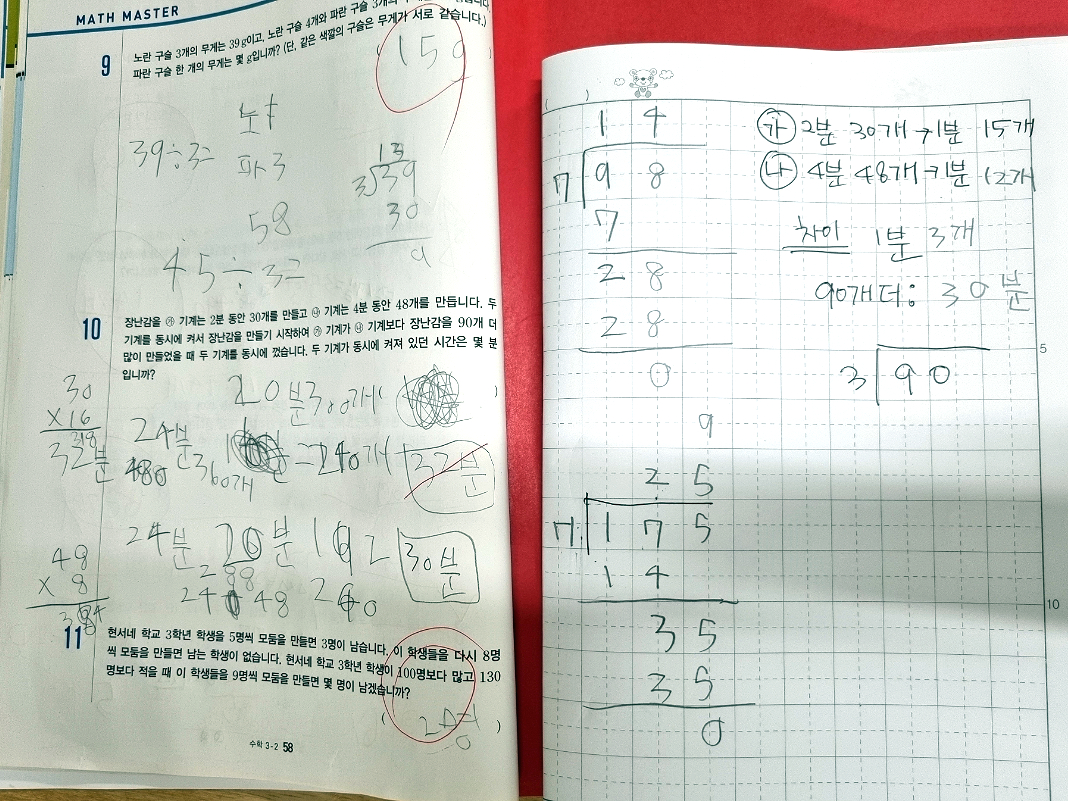 MATH MASTER
9
노란 구슬 3개의 무게는 39g이고, 노란 구슬 4개와 파란 구슬 3개의
파란 구슬 한 개의 무게는 몇 g입니까? (단, 같은 색깔의 구슬은 무게가 서로 같습니다.)
( 15g
노
39÷3=
파3
13
3)39
30
9
58
45÷3=
10
장난감을 ㉮ 기계는 2분 동안 30개를 만들고 ㉯ 기계는 4분 동안 48개를 만듭니다. 두
기계를 동시에 켜서 장난감을 만들기 시작하여 ㉮ 기계가 ㉯ 기계보다 장난감을 90개 더
많이 만들었을 때 두 기계를 동시에 껐습니다. 두 기계가 동시에 켜져 있던 시간은 몇 분
입니까?
30
×16
32분
20분 300개 ( )
24분
480 360개
=240개
32분
24분
30분
48
×8
24 48
11
현서네 학교 3학년 학생을 5명씩 모둠을 만들면 3명이 남습니다. 이 학생들을 다시 8명
씩 모둠을 만들면 남는 학생이 없습니다. 현서네 학교 3학년 학생이 100명보다 많고 130
명보다 적을 때 이 학생들을 9명씩 모둠을 만들면 몇 명이 남겠습니까?
( 2명 )
수학 3-2 58
( )
14
7)98
7
28
28
0
9
25
7)175
14
35
35
0
㉮ 2분 30개→1분 15개
㉯ 4분 48개→1분 12개
차이 1분 3개
90개더: 30분
3)90
5
10